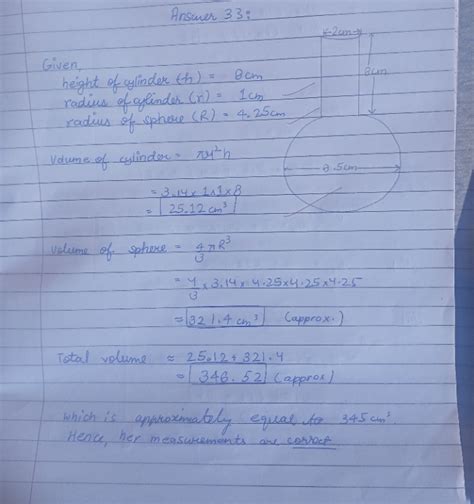 Answer 33:
2cm
Given,
height of cylinder (h) = 8cm
8cm
radius of cylinder (r) = 1cm
radius of sphere (R) = 4.25cm
Volume of cylinder = πr²h
8.5cm
= 3.14 x 1x1 x 8
= 25.12 cm³
Volume of sphere = 4/3 πR³
= 4/3 x 3.14 x 4.25x4.25x4.25
≈ 321.4 cm³ (approx.)
Total volume ≈ 25.12 + 321.4
= 346.52 (approx)
which is approximately equal to 345 cm³
Hence, her measurements are correct